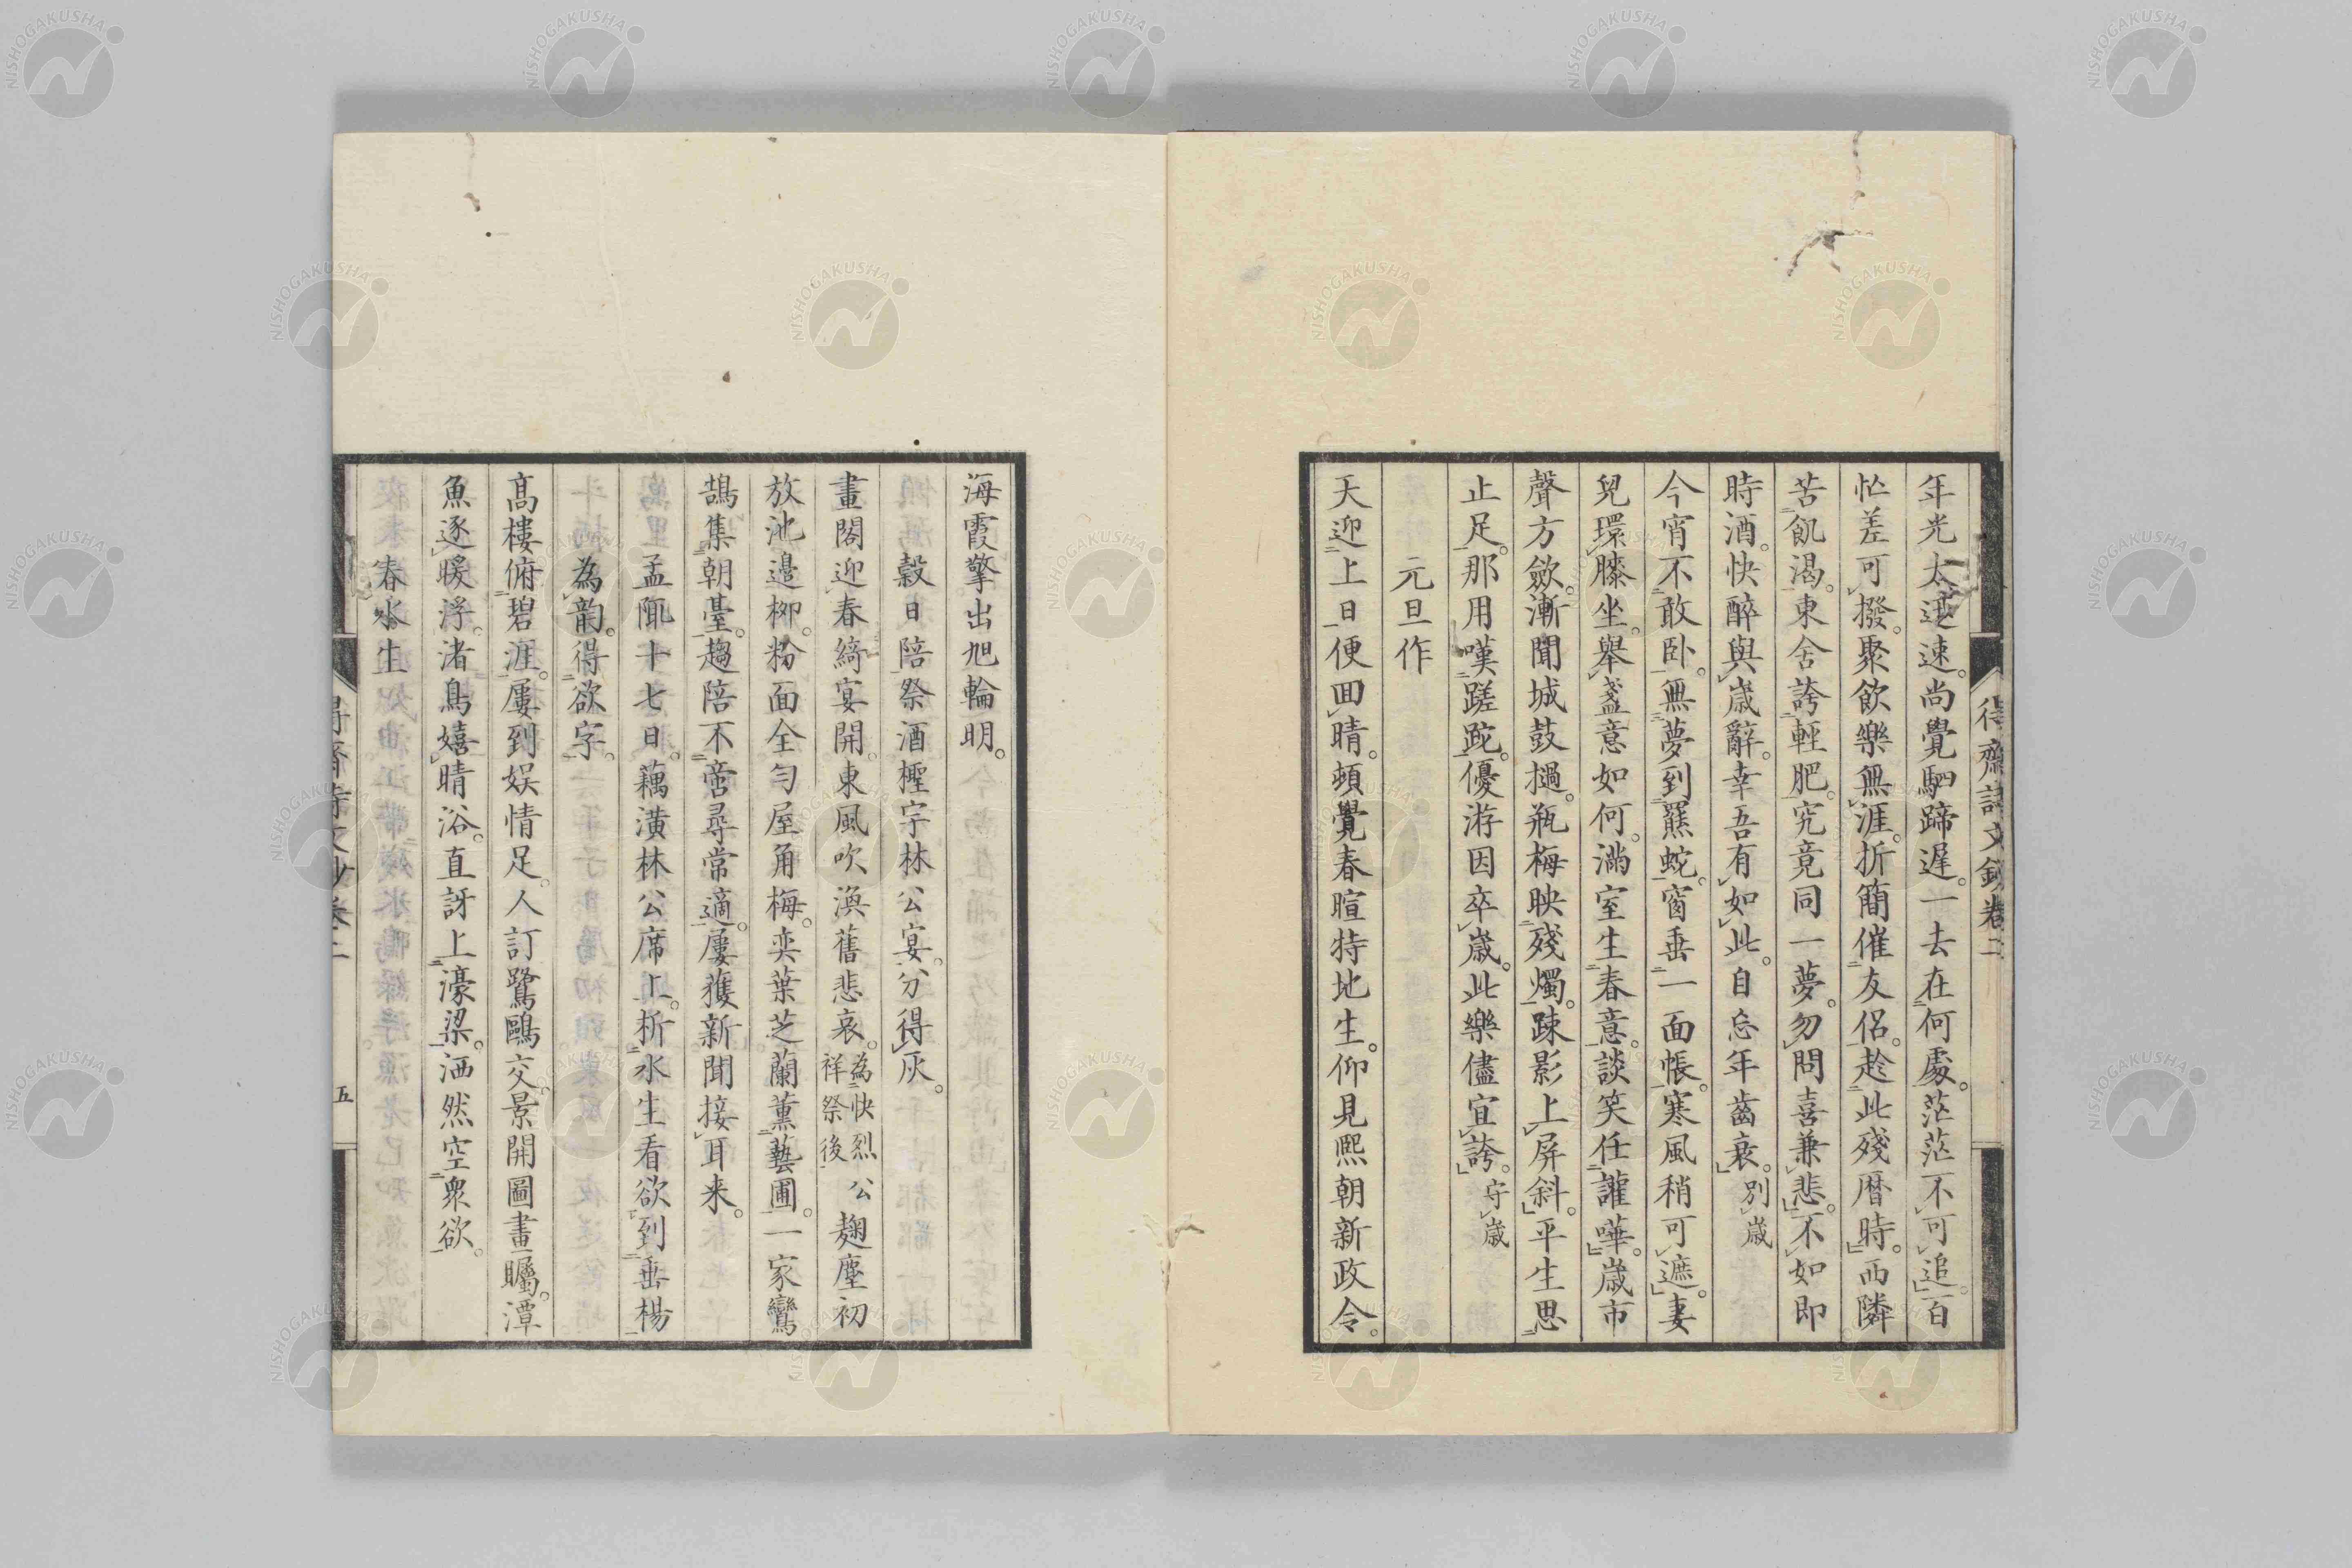 年光太逆速。尚覺駟蹄遲。一去在何處。茫茫不可追。百
忙差可撥。聚飲樂無涯。折簡催友侶。趁此殘暦時。西隣
苦飢渴。東舍誇輕肥。究竟同一夢。勿問喜兼悲。不如即
時酒。快醉與歳辭。幸吾有如此。自忘年齒衰。別歳
今宵不敢卧。無夢到羆蛇。窗垂一面帳。寒風稍可遮。妻
兒環膝坐。舉盞意如何。滿室生春意。談笑任讙嘩。歳市
聲方歛。漸聞城鼓撾。瓶梅映殘燭。疎影上屏斜。平生思
止足。那用嘆蹉跎。優游因卒歳。此樂儘宜誇。守歳
元旦作
天迎上日便囬晴。頻覺春暄特地生。仰見熙朝新政令。
海霞擎出旭輪明。
穀日陪祭酒檉宇林公宴。分得灰。
畫閣迎春綺宴開。東風吹渙舊悲哀。為快烈公祥祭後 麹塵初
放池邉栁。粉面全勻屋角梅。奕葉芝蘭薫藝圃。一家鸞
鵠集朝臺。趨陪不啻尋常適。屢獲新聞接耳来。
孟陬十七日。藕潢林公席上。析水生看欲到垂楊
為韵。得欲字。
髙樓俯碧涯。屢到娯情足。人訂鷺鷗交。景開圖畫矚。潭
魚逐暖浮。渚鳥嬉晴浴。直訝上濠梁。洒然空衆欲。
春水生
得齋詩文鈔卷二
五
NISHOGAKUSHA